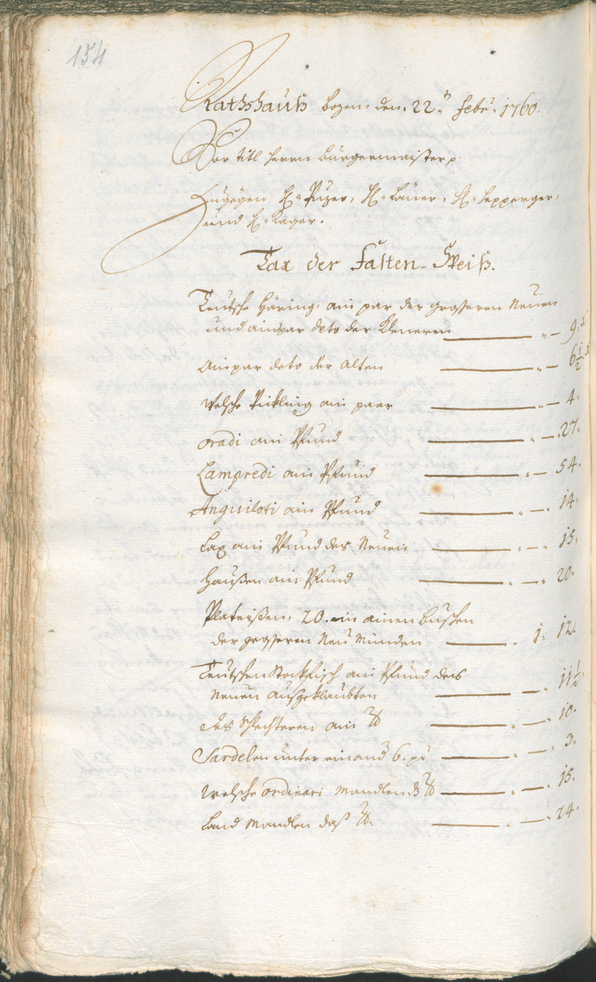 154
Rathshauß Bozen den 22.n Febr: 1760.
Vor titl Herrn Burgermaister
Zugegen H: Puzer, H: Lauer, H:
und H: Kager.
Tax der Fasten-Speiß.
Teutsche Häring: ain par der grösseren Neuen
und ainpar deto der Kleneren — " — 9.
Ainpar deto der Alten — " — 6 1/2
Welsche Pickling ain paar — " — 4.
oradi ain Pfund — " — 27.
Lampredi ain Pfund — " — 54.
Anguiloti ain Pfund — " — 14.
Lax ain Pfund der Neuen — " — 15.
Haußen ain Pfund — " — 20.
Plateißen, 20. in ainen Buschen
der grösseren Neu — 1. 12.
Teutschen Stockfisch ain Pfund des
Neuen ausgeklaubten — " — 11 1/2
des schlechteren ain ℔ — " — 10.
Sardelen unter einand 6. pr — " — 3.
Welsche ordinari Mandlen d ℔ — " — 15.
Land Mandlen daß ℔. — " — 24.